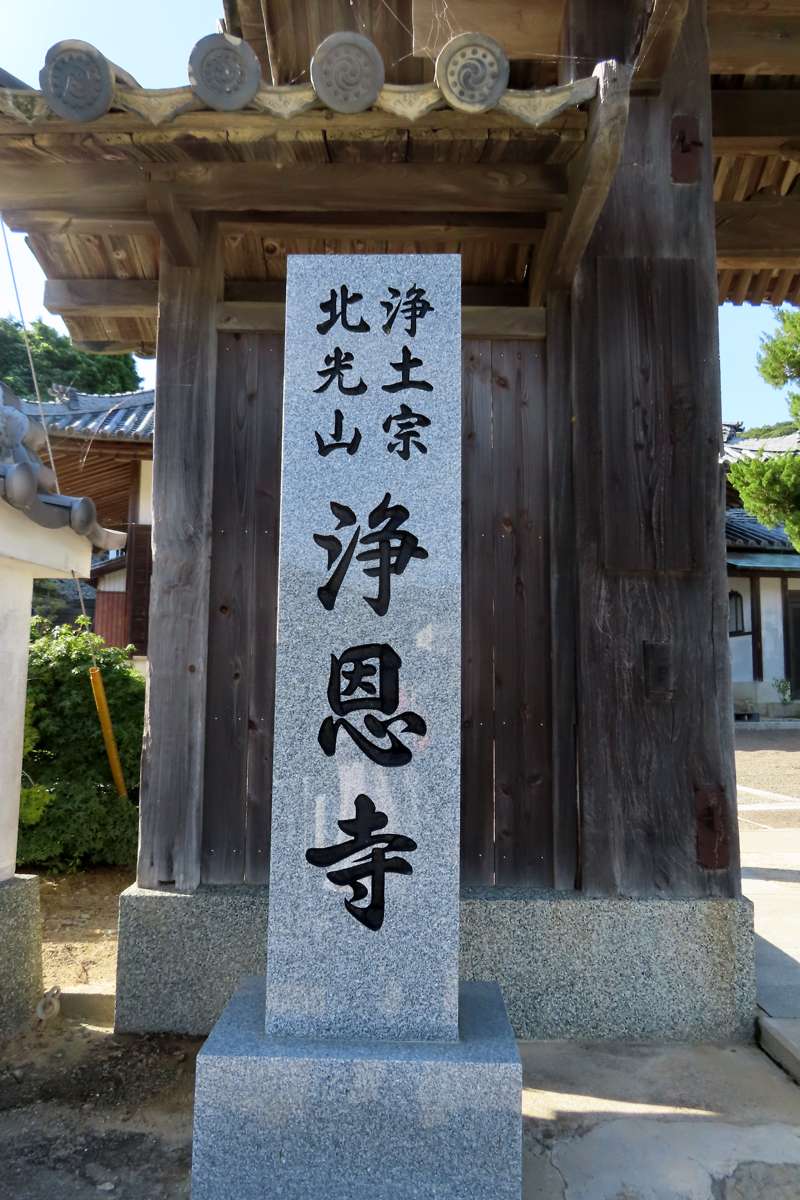 浄土宗
北光山
浄恩寺